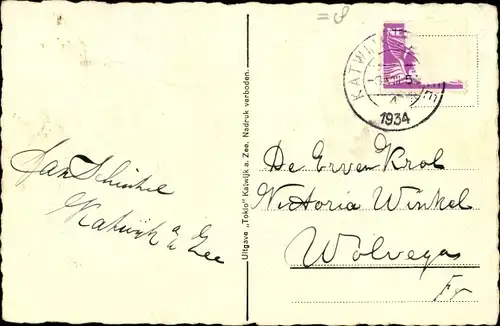 Jan Schinkel
Katwijk a/d Zee
Uitgave „Tokio" Katwijk a. Zee. Nadruk verboden.
KATWIJK
1934
De Erven Krol
Victoria Winkel
Wolvega
Fr